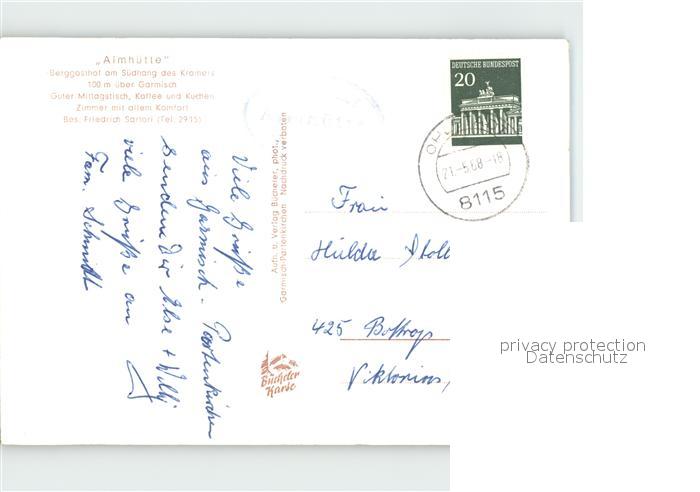 „Almhütte"
Berggasthof am Südhang des Kramers
100 m über Garmisch
Guter Mittagstisch, Kaffee und Kuchen
Zimmer mit allem Komfort
Bes. Friedrich Sartori (Tel. 2915)
Viele Grüße
aus Garmisch-Partenkirchen
senden Dir Else + Willy
viele Grüße an
Fam. Schmidt
Aufn. u. Verlag Bücheler, phot.,
Garmisch-Partenkirchen Nachdruck verboten
Bücheler
Karte
DEUTSCHE BUNDESPOST
20
21.-5.68-18
8115
Frau
Hulda
425 Bottrop
privacy protection
Datenschutz